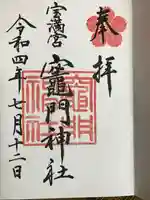 奉拝
宝満宮
竈門神社
令和四年七月十二日